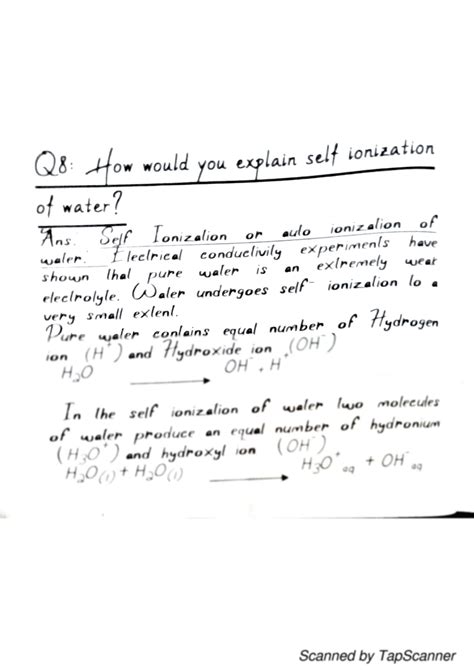 Q8: How would you explain self ionization
of water?
Ans. Self Ionization or auto ionization of
water: Electrical conductivity experiments have
shown that pure water is an extremely weak
electrolyte. Water undergoes self-ionization to a
very small extent.
Pure water contains equal number of Hydrogen
ion (H⁺) and Hydroxide ion (OH⁻)
H₂O ⟶ OH⁻ + H⁺
In the self ionization of water two molecules
of water produce an equal number of hydronium
(H₃O⁺) and hydroxyl ion (OH⁻)
H₂O(l) + H₂O(l) ⟶ H₃O⁺aq + OH⁻aq
Scanned by TapScanner